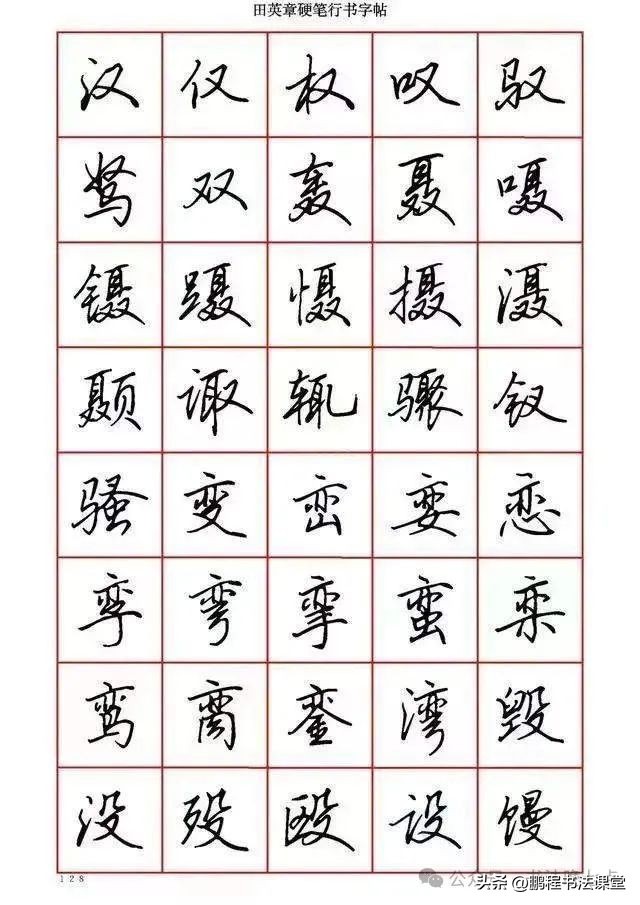 田英章硬笔行书字帖
汉 仅 权 叹 驭
驽 双 轰 聂 嗫
镊 蹑 慑 摄 滠
颞 诹 辄 骤 钗
骚 变 峦 娈 恋
孪 弯 挛 蛮 栾
鸾 脔 銮 湾 毁
没 殁 殴 设 馒
128
头条@鹏程书法课堂